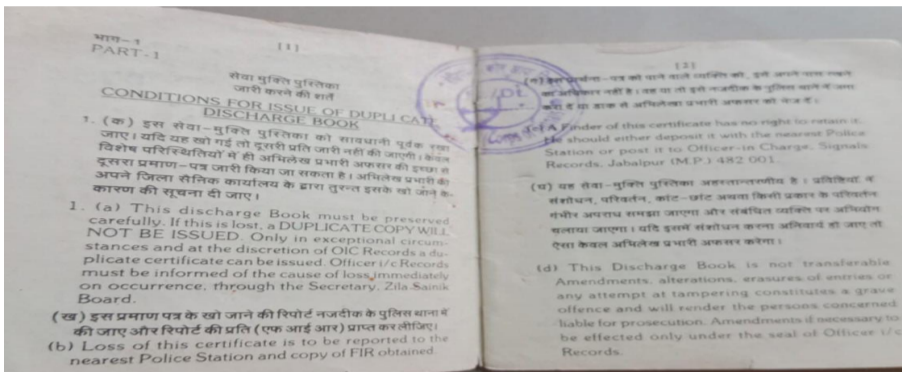 भाग-1
PART-1
[1]
सेवा मुक्ति पुस्तिका
जारी करने की शर्तें
CONDITIONS FOR ISSUE OF DUPLICATE
DISCHARGE BOOK
1. (क) इस सेवा-मुक्ति पुस्तिका को सावधानी पूर्वक रखा
जाए। यदि यह खो गई तो दूसरी प्रति जारी नहीं की जाएगी। केवल
विशेष परिस्थितियों में ही अभिलेख प्रभारी अफसर की इच्छा से
दूसरा प्रमाण-पत्र जारी किया जा सकता है। अभिलेख प्रभारी को
अपने जिला सैनिक कार्यालय के द्वारा तुरन्त इसके खो जाने के
कारण की सूचना दी जाए।
1. (a) This discharge Book must be preserved
carefully. If this is lost, a DUPLICATE COPY WILL
NOT BE ISSUED. Only in exceptional circum-
stances and at the discretion of OIC Records a du-
plicate certificate can be issued. Officer i/c Records
must be informed of the cause of loss immediately
on occurrence, through the Secretary, Zila Sainik
Board.
(ख) इस प्रमाण पत्र के खो जाने की रिपोर्ट नजदीक के पुलिस थाना में
की जाए और रिपोर्ट की प्रति (एफ आई आर) प्राप्त कर लीजिए।
(b) Loss of this certificate is to be reported to the
nearest Police Station and copy of FIR obtained.
[2]
(ग) इस प्रार्थना-पत्र को पाने वाले व्यक्ति को, इसे अपने पास रखने
का अधिकार नहीं है। वह या तो इसे नजदीक के पुलिस थाने में जमा
करा दे या डाक से अभिलेख प्रभारी अफसर को भेज दें।
A Finder of this certificate has no right to retain it.
He should either deposit it with the nearest Police
Station or post it to Officer-in Charge, Signals
Records, Jabalpur (M.P.) 482 001.
(घ) यह सेवा-मुक्ति पुस्तिका अहस्तान्तरणीय है। प्रविष्टियों में
संशोधन, परिवर्तन, कांट-छांट अथवा किसी प्रकार के परिवर्तन
गंभीर अपराध समझा जाएगा और संबंधित व्यक्ति पर अभियोग
चलाया जाएगा। यदि इसमें संशोधन करना अनिवार्य हो जाए तो
ऐसा केवल अभिलेख प्रभारी अफसर करेगा।
(d) This Discharge Book is not transferable
Amendments, alterations, erasures of entries or
any attempt at tampering constitutes a grave
offence and will render the persons concerned
liable for prosecution. Amendments if necessary to
be effected only under the seal of Officer i/c
Records.